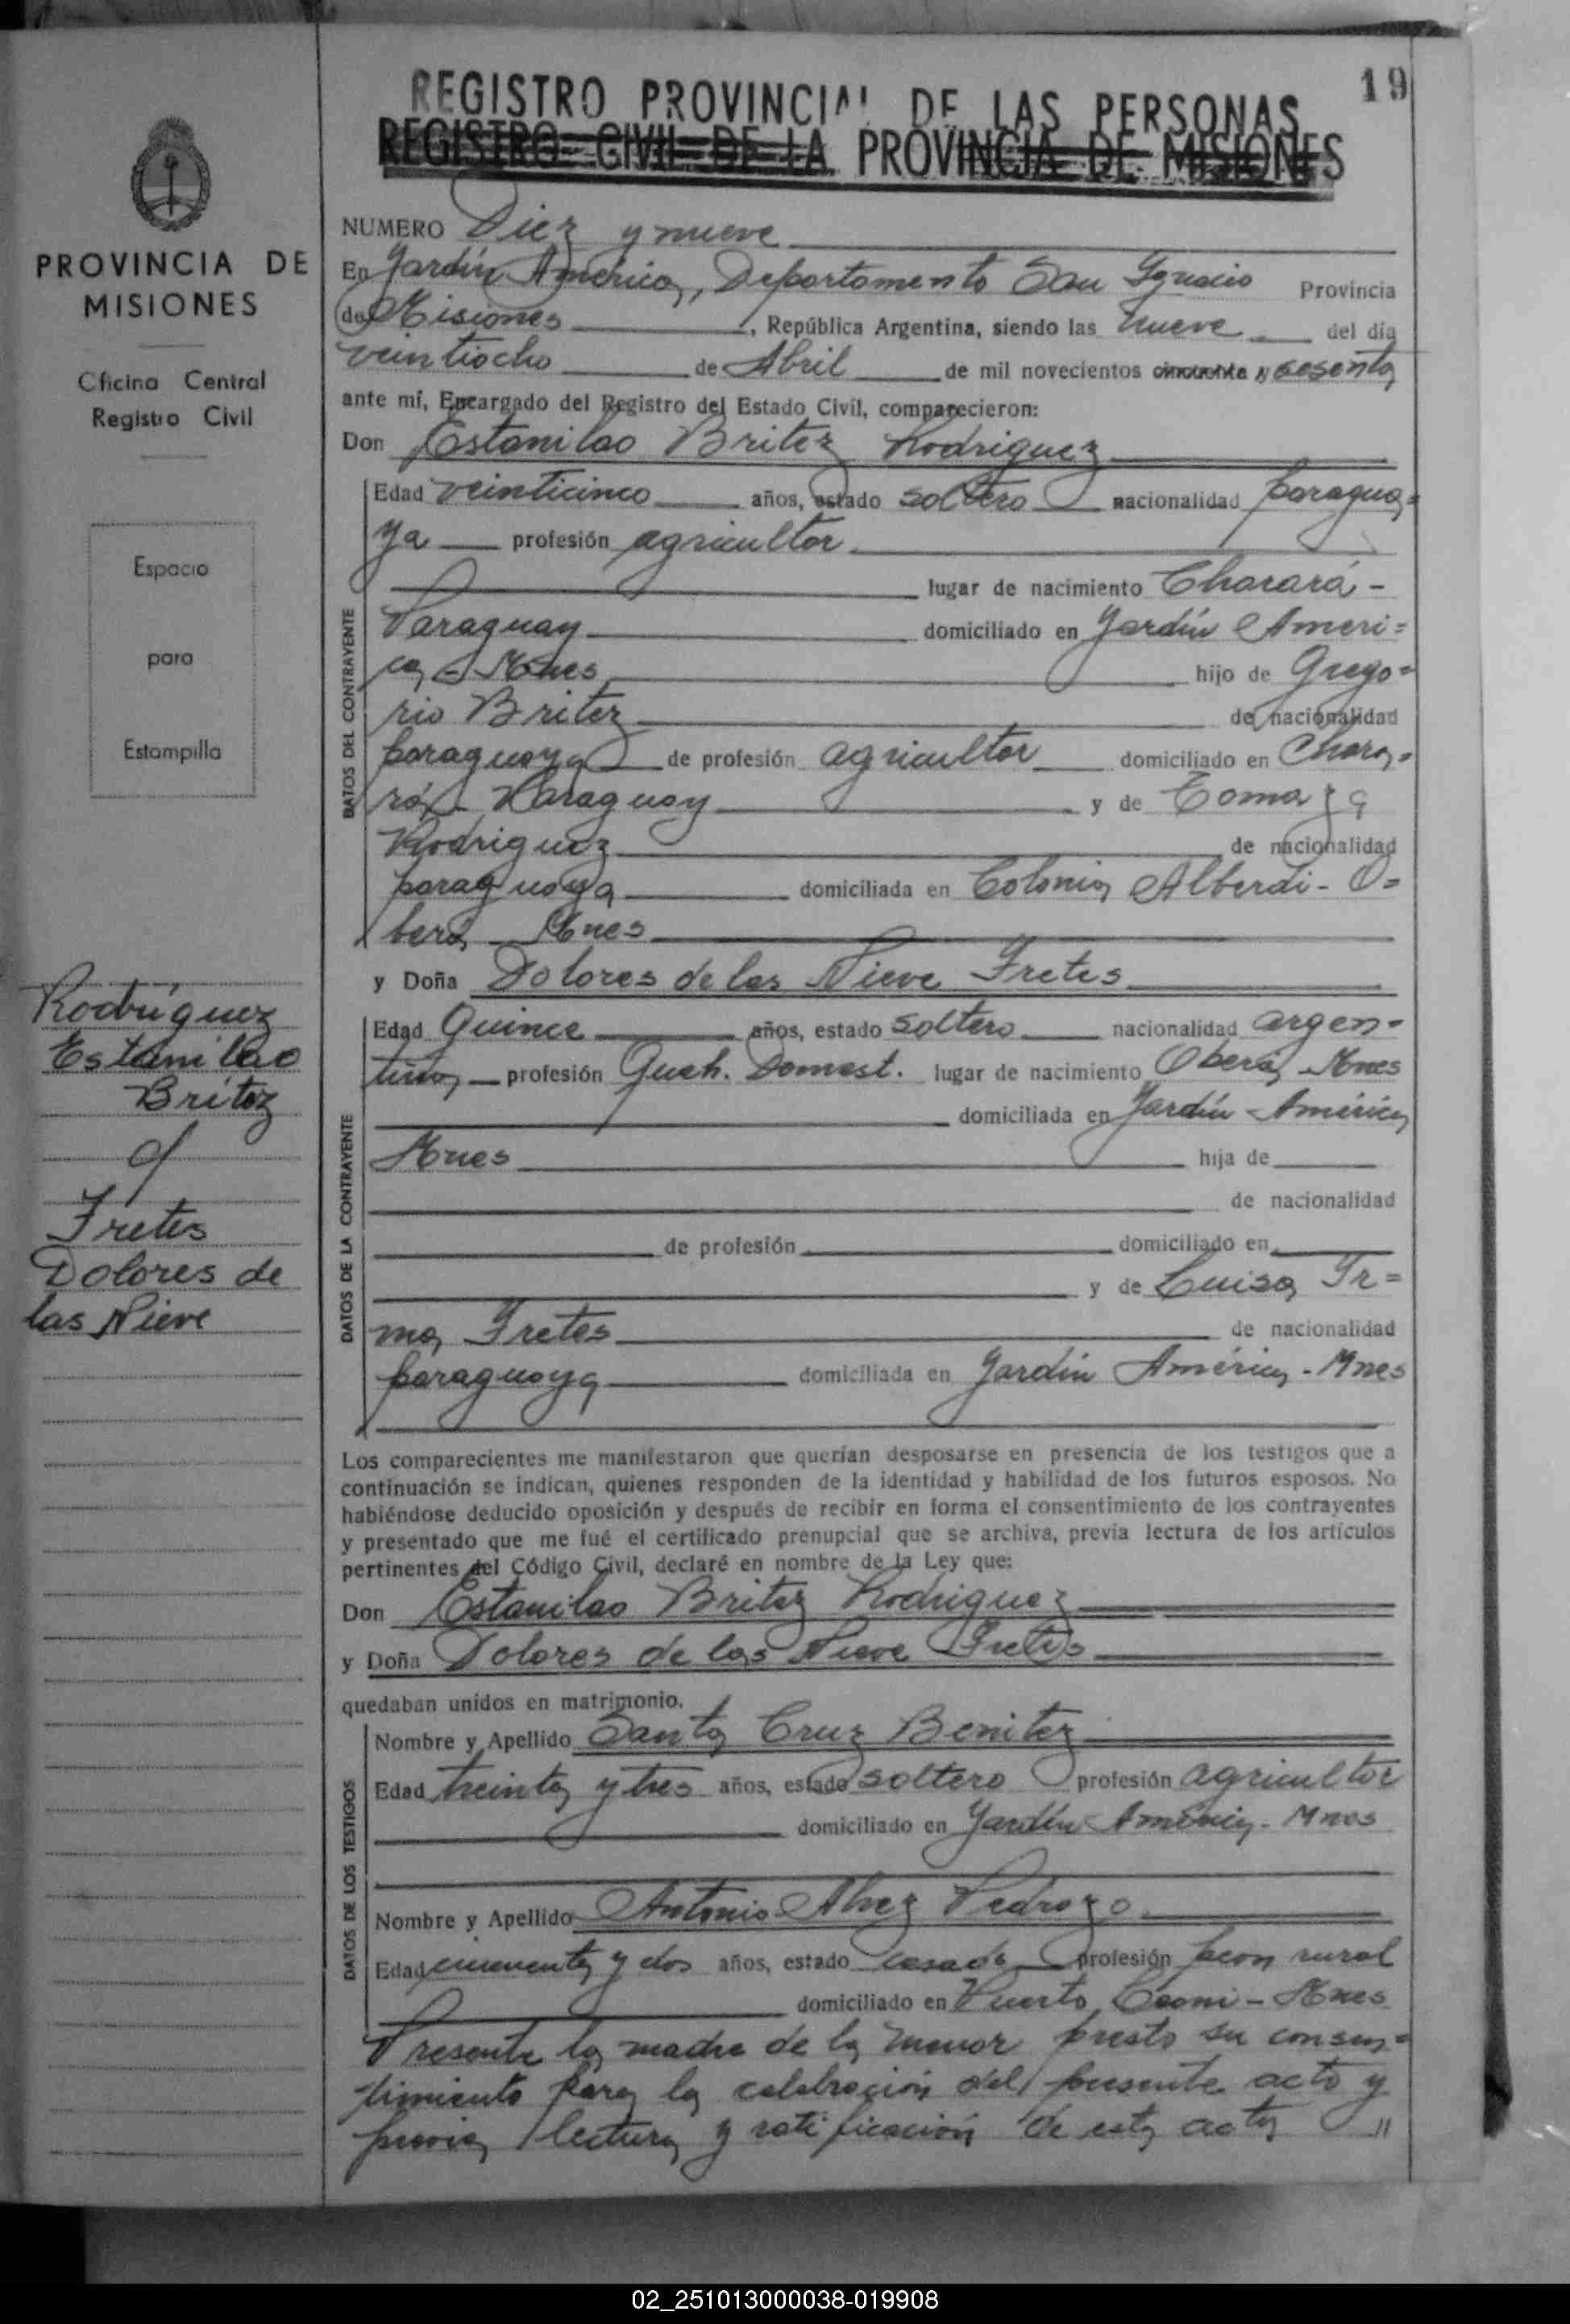 19
REGISTRO PROVINCIAL DE LAS PERSONAS
REGISTRO CIVIL DE LA PROVINCIA DE MISIONES
PROVINCIA DE
MISIONES
Oficina Central
Registro Civil
Espacio
para
Estampilla
Rodriguez
Estanilao
Britez
c/
Fretes
Dolores de
las Nieve
NUMERO Diez y nueve
En Jardín América, Departamento San Ignacio Provincia
de Misiones, República Argentina, siendo las nueve del día
veintiocho de Abril de mil novecientos cincuenta y sesenta
ante mí, Encargado del Registro del Estado Civil, comparecieron:
Don Estanilao Britez Rodriguez
DATOS DEL CONTRAYENTE
Edad veinticinco años, estado soltero nacionalidad paragua=
ya profesión agricultor
lugar de nacimiento Charará -
Paraguay domiciliado en Jardín Améri=
ca - Mnes hijo de Grego=
rio Britez de nacionalidad
paraguaya de profesión agricultor domiciliado en Chara=
rá - Paraguay y de Tomaza
Rodriguez de nacionalidad
paraguaya domiciliada en Colonia Alberdi - O=
berá - Mnes
y Doña Dolores de las Nieve Fretes
DATOS DE LA CONTRAYENTE
Edad Quince años, estado soltera nacionalidad argen=
tina profesión Queh. Domest. lugar de nacimiento Oberá - Mnes
domiciliada en Jardín América
Mnes hija de
de nacionalidad
de profesión domiciliado en
y de Luisa Ir=
ma Fretes de nacionalidad
paraguaya domiciliada en Jardín América - Mnes
Los comparecientes me manifestaron que querían desposarse en presencia de los testigos que a
continuación se indican, quienes responden de la identidad y habilidad de los futuros esposos. No
habiéndose deducido oposición y después de recibir en forma el consentimiento de los contrayentes
y presentado que me fué el certificado prenupcial que se archiva, previa lectura de los artículos
pertinentes del Código Civil, declaré en nombre de la Ley que:
Don Estanilao Britez Rodriguez
y Doña Dolores de las Nieve Fretes
quedaban unidos en matrimonio.
DATOS DE LOS TESTIGOS
Nombre y Apellido Santa Cruz Benitez
Edad treinta y tres años, estado soltero profesión agricultor
domiciliado en Jardín América - Mnes
Nombre y Apellido Antonio Alvez Pedrozo
Edad cincuenta y dos años, estado casado profesión peon rural
domiciliado en Puerto - Mnes
Presente la madre de la menor presto su consen=
timiento para la celebración del presente acto y
previa lectura y ratificación de esta acta //
02_251013000038-019908